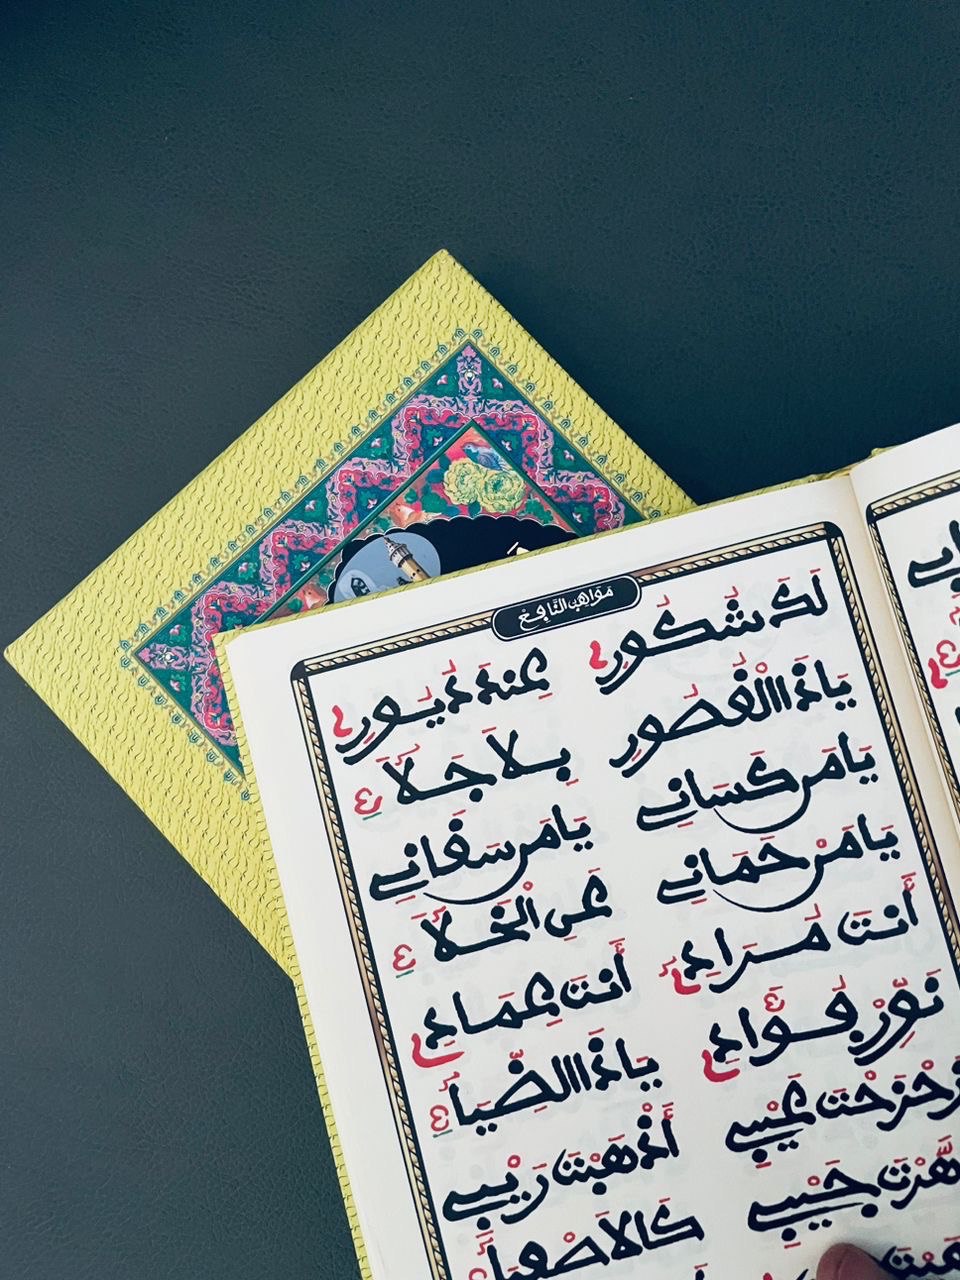 مَوَاهِبُ النَّافِعْ
لَكَ شُكُورِي عِنْدَ دُيُورِي
يَا ذَا الْقُصُورِ بِلَا جَلَاءِ
يَا مَن كَسَانِي يَا مَن سَقَانِي
يَا مَنْ حَمَانِي عَنِ الْخَلَاءِ
أَنْتَ مُرَادِي أَنْتَ عِمَادِي
نَوِّرْ فُؤَادِي يَا ذَا الضِّيَاءِ
زَحْزَحْتَ عَيْبِي أَذْهَبْتَ رَيْبِي
جَيْبِي كَالْأَصْفِيَاءِ